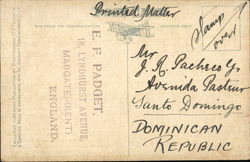 Printed Matter
Stamp over
THIS SPACE FOR COMMUNICATION
ADDRESS ONLY
E. F. PADGET,
18, LYNDHURST AVENUE,
MARGATE (KENT)
ENGLAND.
Mr
J. R. Pacheco G.
Avenida Pasteur
Santo Domingo
DOMINICAN
REPUBLIC